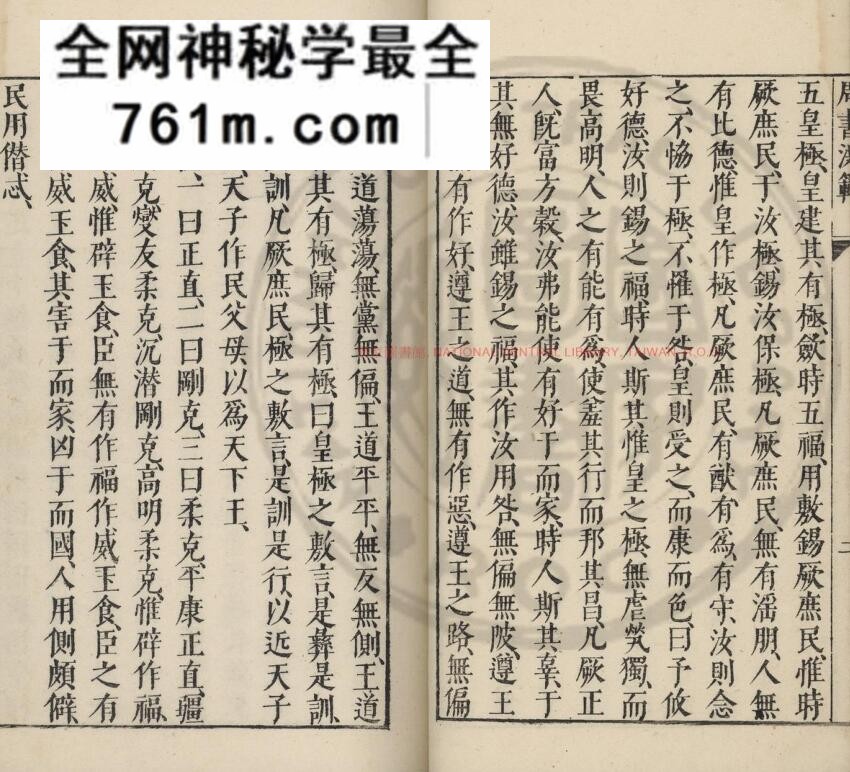 全网神秘学最全
761m.com
周書洪範
二
五皇極、皇建其有極、歛時五福、用敷錫厥庶民、惟時
厥庶民、于汝極、錫汝保極、凡厥庶民、無有滛朋、人無
有比德、惟皇作極、凡厥庶民、有猷有爲、有守、汝則念
之、不恊于極、不惟于咎、皇則受之、而康而色、曰予攸
好德、汝則錫之福、時人斯其惟皇之極、無虐煢獨、而
畏高明、人之有能有爲、使羞其行而邦其昌、凡厥正
人、旣富方穀、汝弗能使有好于而家、時人斯其辜、于
其無好德、汝雖錫之福、其作汝用咎、無偏無陂、遵王
有作好、遵王之道、無有作惡、遵王之路、無偏
道蕩蕩、無黨無偏、王道平平、無反無側、王道
其有極、歸其有極、曰皇極之敷言、是彝是訓、
訓、凡厥庶民、極之敷言、是訓是行、以近天子
天子作民父母以爲天下王、
一曰正直、二曰剛克、三曰柔克、平康正直、彊
克、燮友柔克、沉潜剛克、高明柔克、惟辟作福、
威、惟辟玉食、臣無有作福作威玉食、臣之有
威玉食、其害于而家、凶于而國、人用側頗僻、
民用僭忒、
NATIONAL CENTRAL LIBRARY, TAIWAN, R.O.C